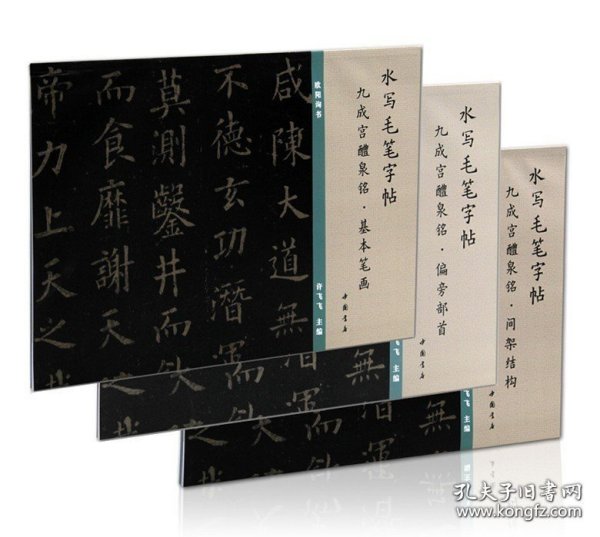 水写毛笔字帖
九成宫醴泉铭·基本笔画
中国书店
欧阳询书
许飞飞 主编
咸陳大道無
不德玄功潛運
莫測鑿井而飲
而食靡謝天
帝力上天之
水写毛笔字帖
九成宫醴泉铭·偏旁部首
中国书店
飞飞 主编
水写毛笔字帖
九成宫醴泉铭·间架结构
中国书店
飞飞 主编
孔夫子旧书网
www.kongfz.com